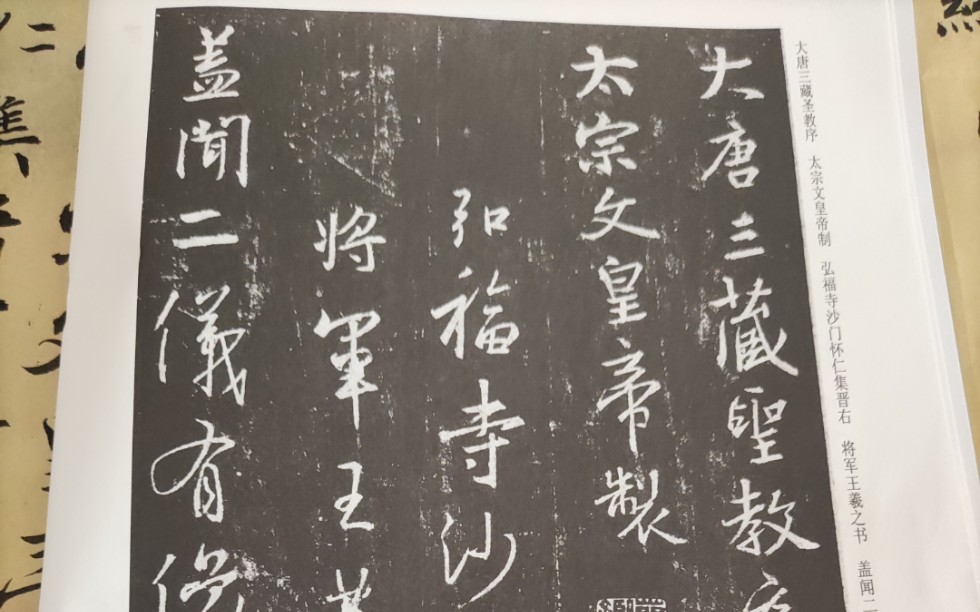 大唐三藏圣教序 太宗文皇帝制 弘福寺沙门怀仁集晋右 将军王羲之书 盖闻二
大唐三藏聖教序
太宗文皇帝製
弘福寺沙
將軍王羲
蓋聞二儀有像